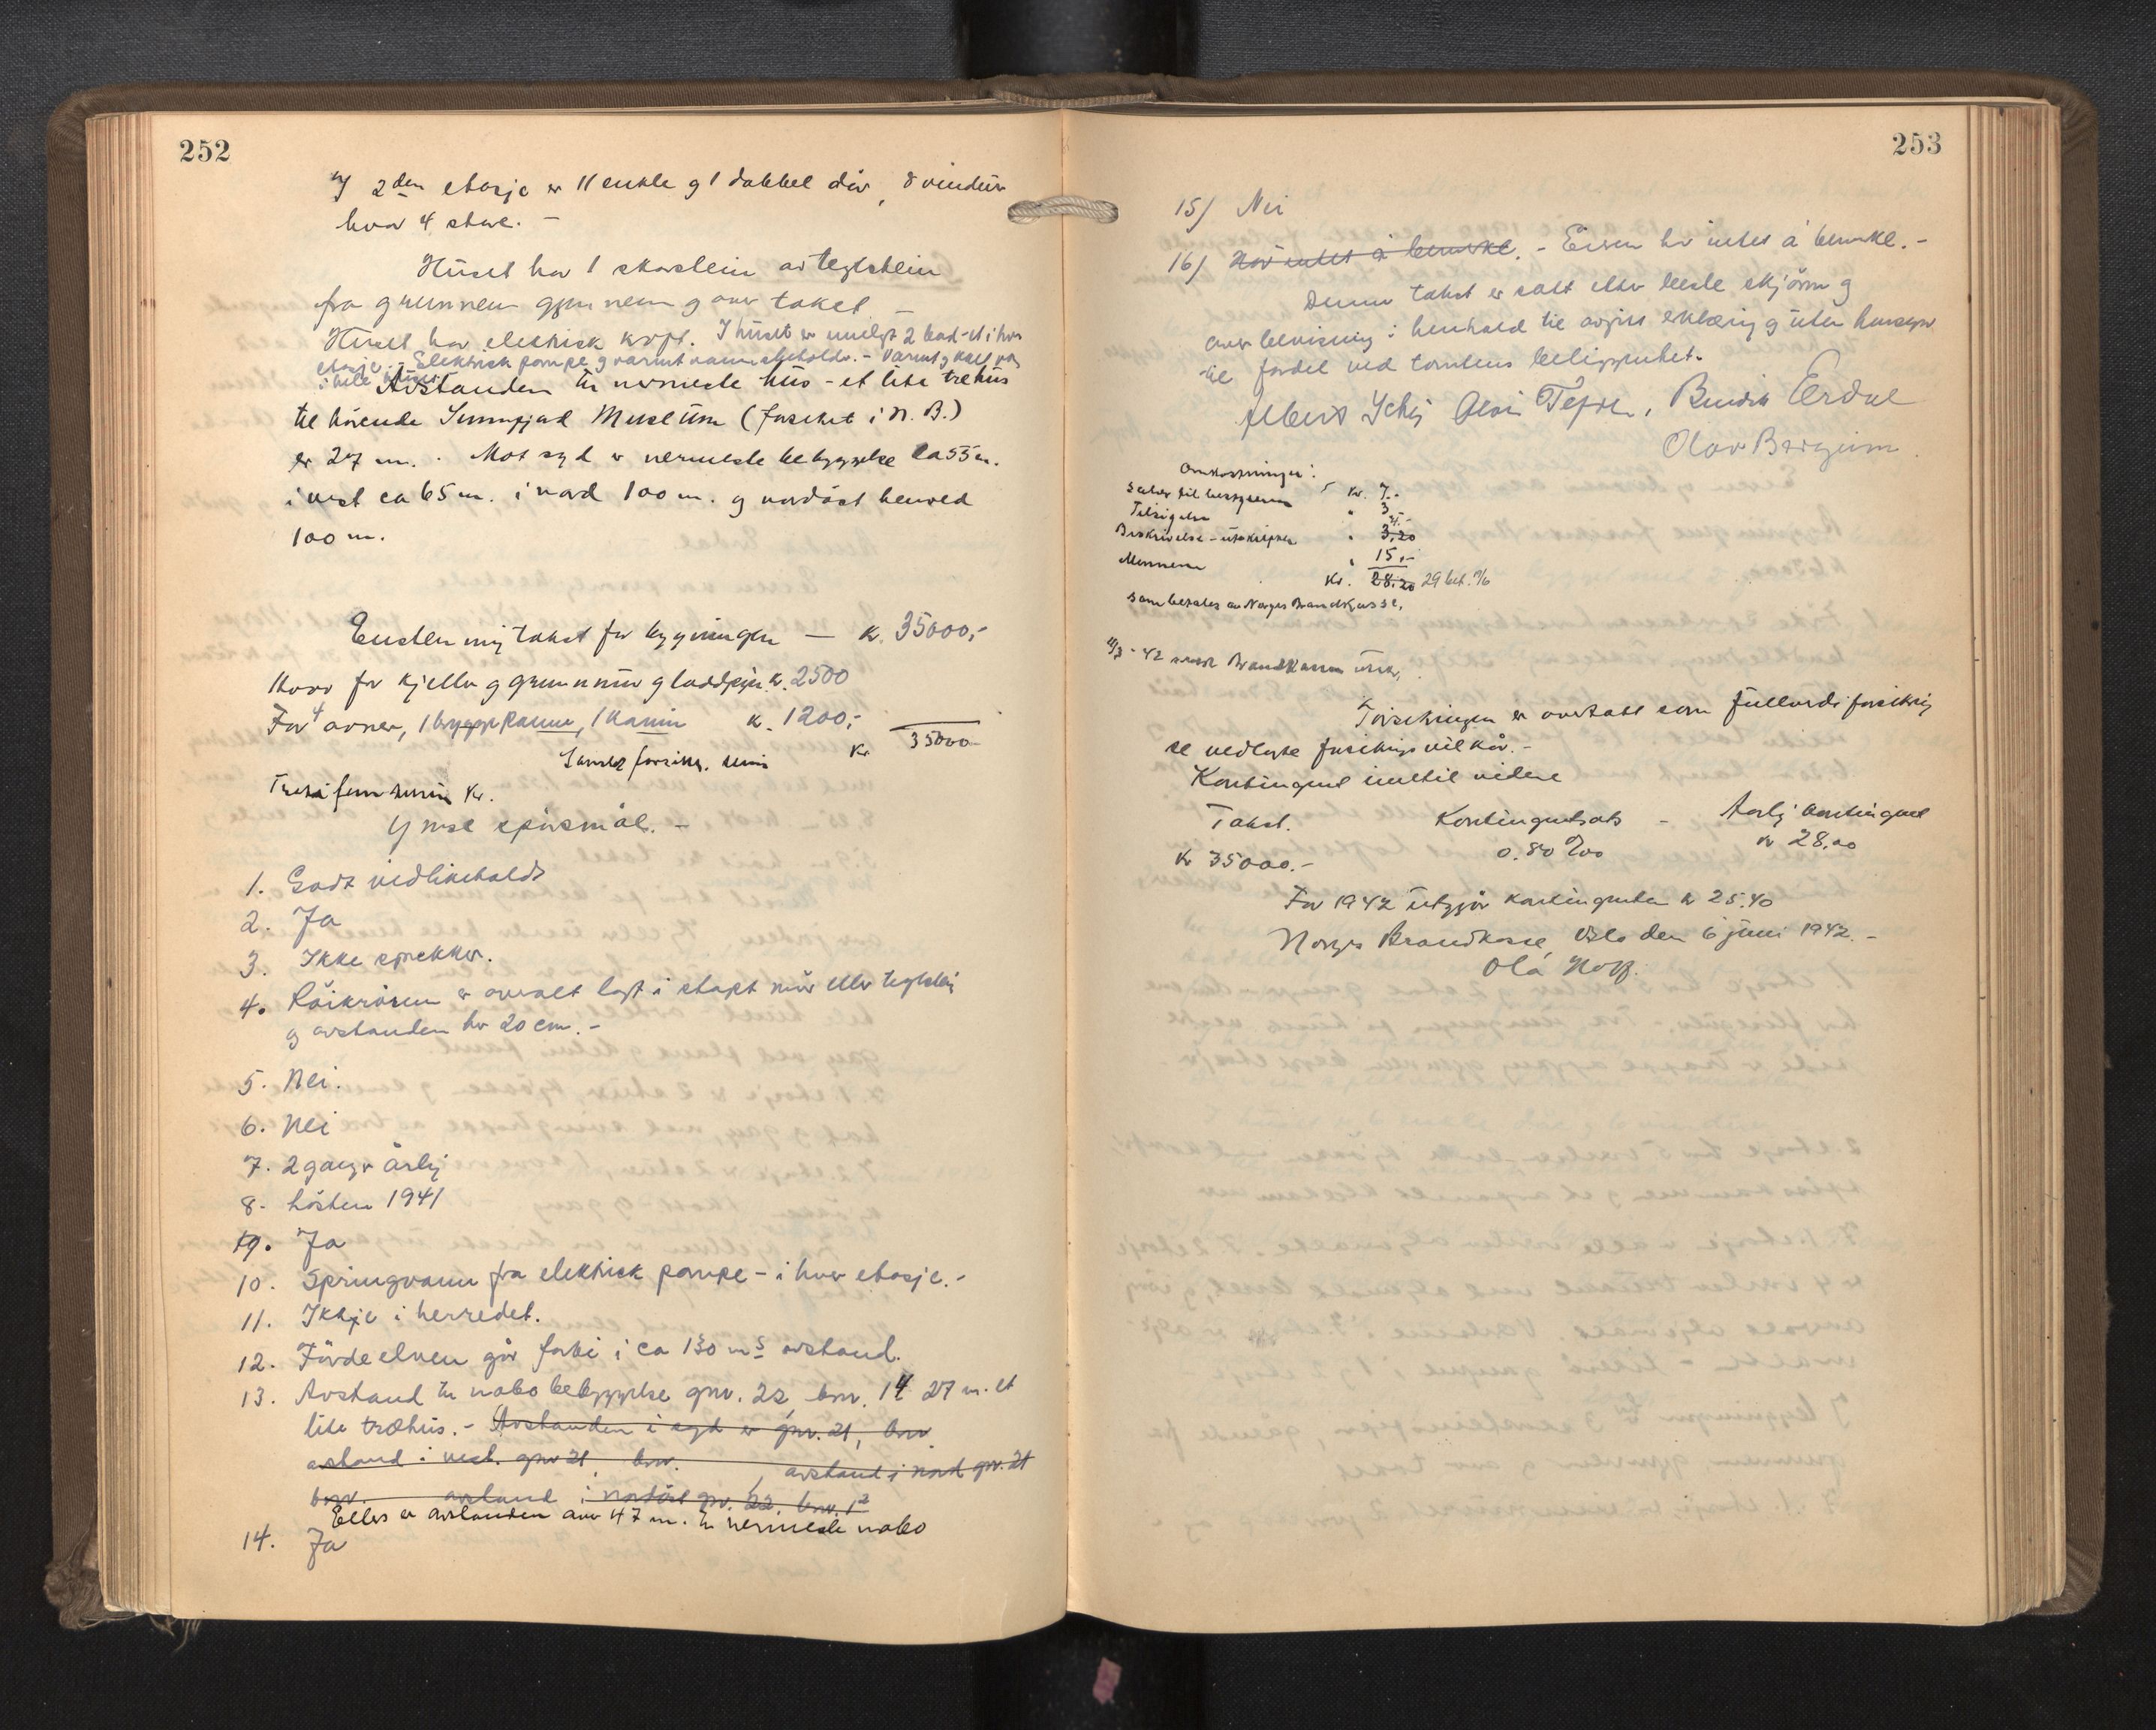 252
I 2den etasje er 11 enkle og 1 dobbel dör, 8 vindür
hvor 4 store. -
Hüset har 1 skorstein av teglstein
fra grunnen gjennem og over taket -
Hüset har elektrisk kraft. I hüset er innlagt 2 bad - et i hver
etasje. Elektrisk pumpe og varmt vanns beholder. - Varmt og kalt van
i hele hüset.
Avstanden til nærmeste hüs - et lite trehüs
til hörende Sunnfjord Museüm (forsikret i N. B.)
er 27 m. . Mot syd er nærmeste bebyggelse ca 55 m.
i vest ca 65 m. i nord 100 m. og nordöst henved
100 m.
Enstemmig takst for bygningen — kr. 35000,-
Hvor for kjeller og grunnmür og kr. 2500
For 4 ovner, 1 bryggepanne, 1 kamin kr. 1200,-
Samlet forsikr. sum kr 35000-
Tretti fem tusin Kr.
Ymse spörsmål. -
1. Godt vedlikeholdt
2. Ja
3. Ikke sprekker.
4. Röikrören er overalt lagt i støpt mür eller teglstein
og avstanden hv 20 cm. -
5. Nei.
6. Nei
7. 2 ganger årlig
8. hösten 1941
9. Ja
10. Springvann fra elektrisk pumpe - i hver etasje. -
11. Ikkje i herredet.
12. Fördeelven går forbi i ca 130 ms avstand.
13. Avstand til nabobebyggelse gnr. 22, bnr. 14 27 m. et
lite træhüs. - Avstanden i syd er gnr. 21, bnr
avstand i vest. gnr 21 bnr. , avstand i nord gnr. 21
bnr. avstand i nordöst gnr. 22. bnr. 12
Elles er avstanden over 47 m. til nermeste nabo
14. Ja
253
15/ Nei
16/ Har intet å bemerke. - Eieren har intet å bemerke. -
Denne takst er satt etter beste skjönn og
overbevisning i henhold til avgitt erklæring og üten hensyn
til fordel ved tomtens beliggenhet.
Albert Bendik Erdal
Olav Bergum.
Omkostninger:
Saker til bestyreren kr. 7.-
Tilsigelse " 3.-
Beskrivelse - ütskripter " 3,20 4.-
Mennene " 15,-
Kr. 28.20 29 bet. 9/6
som betales av Norges Brandkasse.
11/3 - 42 sendt Brandkassen ütsk,
Forsikringen er overtatt som füllverdiforsikring
se vedlagte forsikringsvilkår. -
Kontingent inntil videre
Takst. Kontingentsats - Aarlig kontingent
kr 35000.- 0.80 ‰ kr 28.00
For 1942 ütgjör kontingenten kr 25.40
Norges Brandkasse, Oslo den 6 jüni 1942. -
Ola